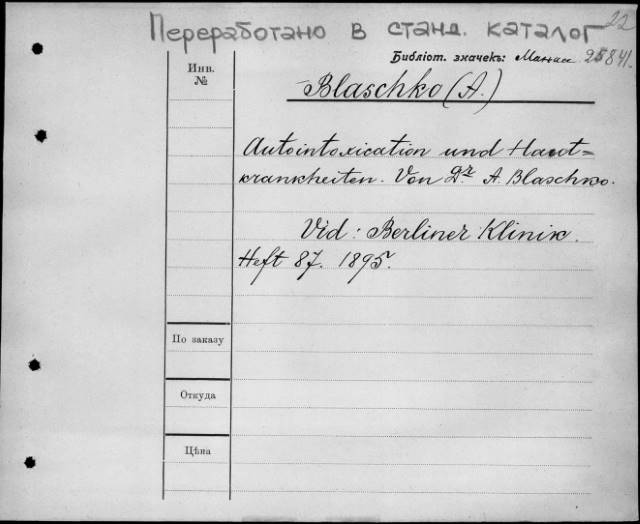 22
Переработано в станд. каталог
Библіот. значекъ: 25841.
Инв.
№
Blaschko (A.)
Autointoxication und Haut=
krankheiten. Von Dr. A. Blaschko.
Vid: Berliner Klinik.
Heft 87. 1895.
По заказу
Откуда
Цѣна